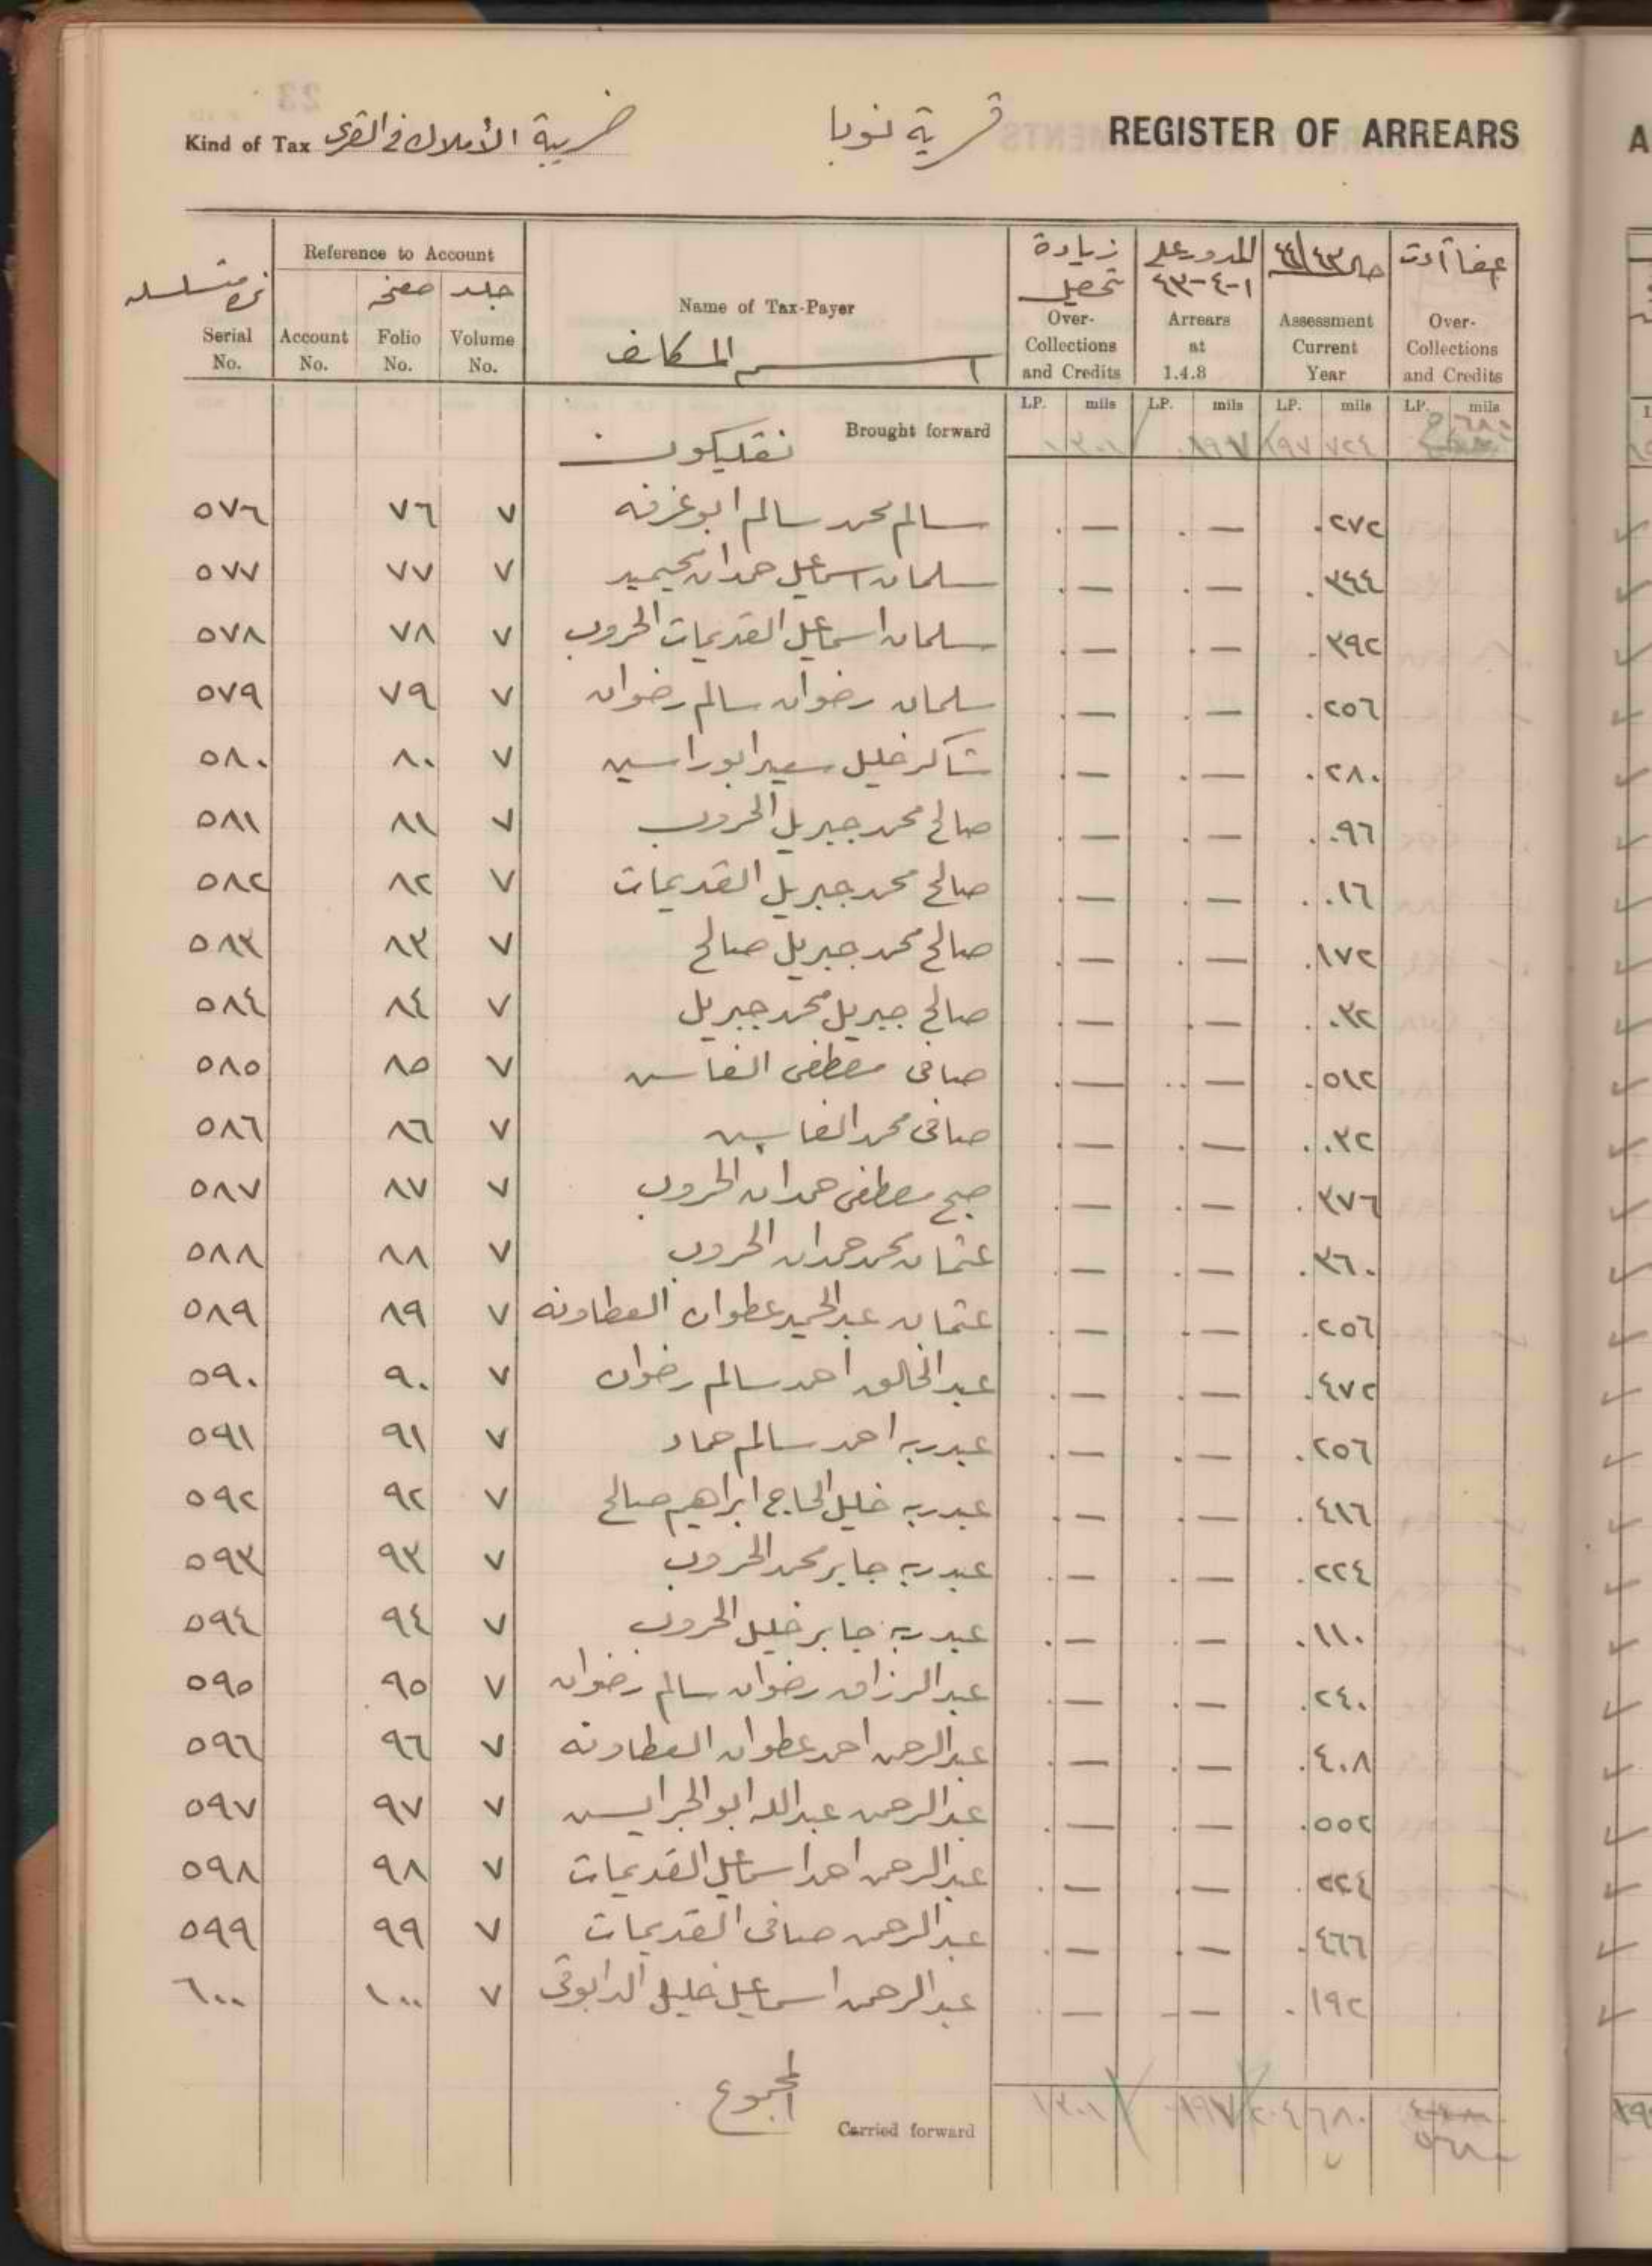 Kind of Tax ضريبة الأملاك في القرى قرية نوبا REGISTER OF ARREARS
نمرة متسلسله Serial No.
Reference to Account
Account No. صفحه Folio No. جلد Volume No.
Name of Tax-Payer
اسم المكلف
زيادة تحصيل Over-Collections and Credits
المدور على ١-٤-٤٣ Arrears at 1.4.8
حال ٤٣/٤٤ Assessment Current Year
Over-Collections and Credits
LP. mils LP. mils LP. mils LP. mils
Brought forward ١٣٠١ ٨٩٧ ١٩٧ ٧٢٤
٥٧٦ ٧٦ ٧ سالم محمد سالم ابو غرفه . — . — . ٢٧٢
٥٧٧ ٧٧ ٧ سلمان اسماعيل حمدان . — . — . ٣٤٤
٥٧٨ ٧٨ ٧ سلمان اسماعيل القديمات الحروب . — . — . ٣٩٢
٥٧٩ ٧٩ ٧ سلمان رضوان سالم رضوان . — . — . ٢٥٦
٥٨٠ ٨٠ ٧ شاكر خليل سعيد ابوراسين . — . — . ٢٨٠
٥٨١ ٨١ ٧ صالح محمد جبريل الحروب . — . — . ٠٩٦
٥٨٢ ٨٢ ٧ صالح محمد جبريل القديمات . — . — . ٠١٦
٥٨٣ ٨٣ ٧ صالح محمد جبريل صالح . — . — . ١٧٢
٥٨٤ ٨٤ ٧ صالح جبريل محمد جبريل . — . — . ٠٣٢
٥٨٥ ٨٥ ٧ صافي مصطفى . — . — . ٥١٢
٥٨٦ ٨٦ ٧ صافي محمد . — . — . ٠٣٢
٥٨٧ ٨٧ ٧ صبح مصطفى حمدان الحروب . — . — . ٣٧٦
٥٨٨ ٨٨ ٧ عثمان محمد حمدان الحروب . — . — . ٣٦٠
٥٨٩ ٨٩ ٧ عثمان عبدالحميد عطوان العطاونه . — . — . ٢٥٦
٥٩٠ ٩٠ ٧ عبدالخالق احمد سالم رضوان . — . — . ٤٧٢
٥٩١ ٩١ ٧ عبدربه احمد سالم حماد . — . — . ٢٥٦
٥٩٢ ٩٢ ٧ عبدربه خليل الحاج ابراهيم صالح . — . — . ٤١٦
٥٩٣ ٩٣ ٧ عبدربه جابر محمد الحروب . — . — . ٢٢٤
٥٩٤ ٩٤ ٧ عبدربه جابر خليل الحروب . — . — . ١١٠
٥٩٥ ٩٥ ٧ عبدالرزاق رضوان سالم رضوان . — . — . ٢٤٠
٥٩٦ ٩٦ ٧ عبدالرحمن احمد عطوان العطاونه . — . — . ٤٠٨
٥٩٧ ٩٧ ٧ عبدالرحمن عبدالله ابو . — . — . ٥٥٢
٥٩٨ ٩٨ ٧ عبدالرحمن احمد اسماعيل القديمات . — . — . ٢٢٤
٥٩٩ ٩٩ ٧ عبدالرحمن صافي القديمات . — . — . ٤٦٦
٦٠٠ ١٠٠ ٧ عبدالرحمن اسماعيل خليل الدابوقي . — . — . ١٩٢
المجموع Carried forward ١٣٠١ ٨٩٧ ٢٠٤ ٦٨٠